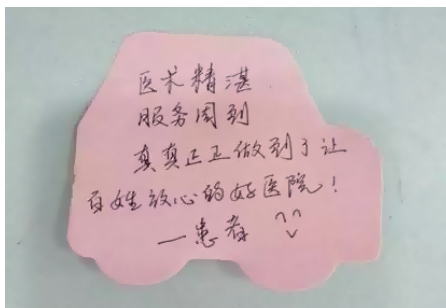 医术精湛
服务周到
真真正正做到了让
百姓放心的好医院！
一患者 ^^